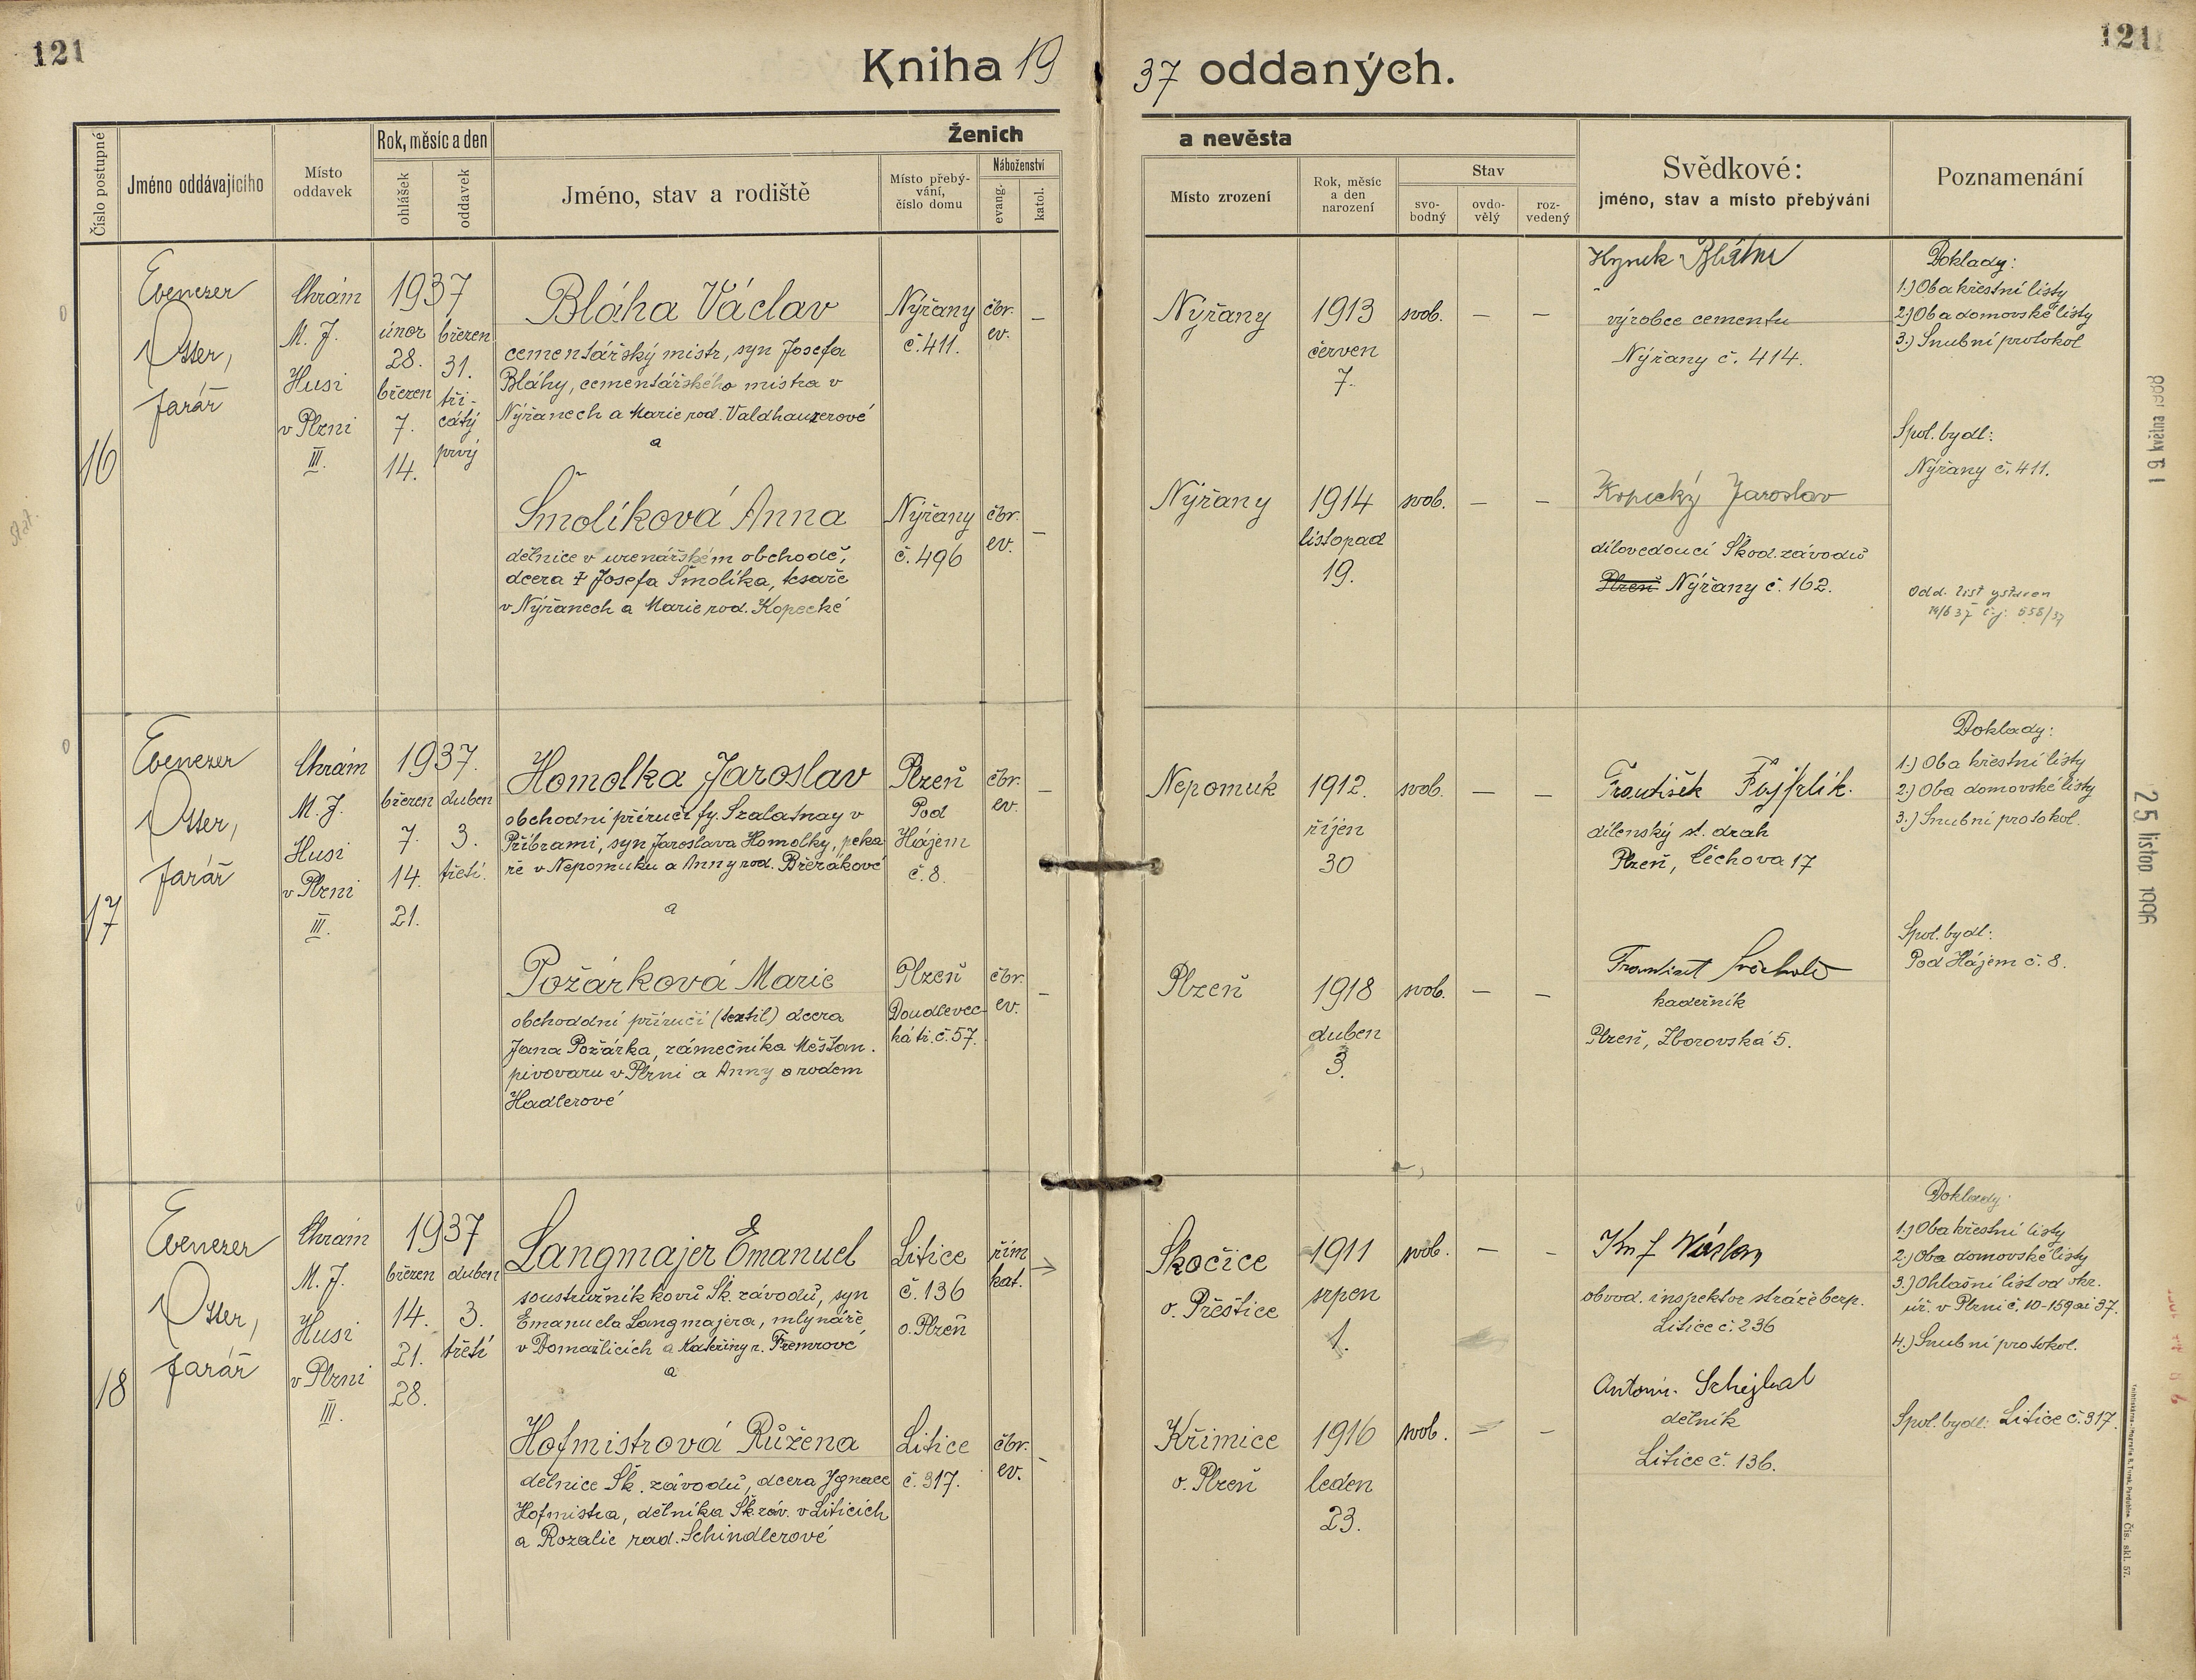 121
121
Kniha 1937 oddaných.
Číslo postupné
Jméno oddávajícího
Místo oddavek
Rok, měsíc a den
ohlášek
oddavek
Ženich
a nevěsta
Jméno, stav a rodiště
Místo přebý-
vání,
číslo domu
Náboženství
evang.
katol.
Místo zrození
Rok, měsíc
a den
narození
Stav
svo-
bodný
ovdo-
vělý
roz-
vedený
Svědkové:
jméno, stav a místo přebývání
Poznamenání
16
Ebenezer
Otter,
farář
Chrám
M. J.
Husi
v Plzni
III.
1937
únor
28.
březen
7.
14.
březen
31.
tři-
cátý
prvý
Bláha Václav
cementářský mistr, syn Josefa
Bláhy, cementářského mistra v
Nýřanech a Marie rod. Valdhauzerové
a
Nýřany
č. 411.
čbr.
ev.
–
Nýřany
1913
červen
7.
svob.
–
–
Hynek Bláha
výrobce cementu
Nýřany č. 414.
Doklady:
1.) Oba křestní listy
2.) Oba domovské listy
3.) Snubní protokol
Spol. bydl:
Nýřany č. 411.
Šmolíková Anna
dělnice v uzenářském obchodě,
dcera † Josefa Šmolíka, tesaře
v Nýřanech a Marie rod. Kopecké
Nýřany
č. 496
čbr.
ev.
–
Nýřany
1914
listopad
19.
svob.
–
–
Kopecký Jaroslav
dílovedoucí Škod. závodů
Plzeň Nýřany č. 162.
Odd. list vystaven
14/6 37 č.j. 558/37
stat.
17
Ebenezer
Otter,
farář
Chrám
M. J.
Husi
v Plzni
III.
1937.
březen
7.
14.
21.
duben
3.
třetí.
Homolka Jaroslav
obchodní příručí fy. Szalatnay v
Příbrami, syn Jaroslava Homolky, peka
ře v Nepomuku a Anny rod. Břežákové
a
Plzeň
Pod
Hájem
č. 8.
čbr.
ev.
–
Nepomuk
1912.
říjen
30
svob.
–
–
František
dílenský st. drah
Plzeň, Čechova 17
Doklady:
1.) Oba křestní listy
2.) Oba domovské listy
3.) Snubní protokol.
Spol. bydl:
Pod Hájem č. 8.
Požárková Marie
obchoddní příručí (textil) dcera
Jana Požárka, zámečníka Měšťan.
pivovaru v Plzni a Anny o rodem
Hadlerové
Plzeň
Doudlevec-
ká tř. č. 57.
čbr.
ev.
–
Plzeň
1918
duben
3.
svob.
–
–
František
kadeřník
Plzeň, Zborovská 5.
18
Ebenezer
Otter,
farář
Chrám
M. J.
Husi
v Plzni
III.
1937
březen
14.
21.
28.
duben
3.
třetí
Langmajer Emanuel
soustružník kovů Šk. závodů, syn
Emanuela Langmajera, mlynáře
v Domažlicích a Kateřiny r. Fremrové
a
Litice
č. 136
o. Plzeň
řím.
kat.
→
Skočice
o. Přeštice
1911
srpen
1.
svob.
–
–
Václav
obvod. inspektor stráže bezp.
Litice č. 236
Doklady:
1.) Oba křestní listy
2.) Oba domovské listy
3.) Ohlašní list od okr.
úř. v Plzni č. 10-159 ai 37.
4.) Snubní protokol.
Spol. bydl: Litice č. 317.
Hofmistrová Růžena
dělnice Šk. závodů, dcera Ignace
Hofmistra, dělníka Šk. záv. v Liticích
a Rozalie rod. Schindlerové
Litice
č. 317.
čbr.
ev.
–
Křimice
o. Plzeň
1916
leden
23.
svob.
–
–
Antonín Schejbal
dělník
Litice č. 136.
19 května 1988
25 listop 1996
Čís. skl. 57.